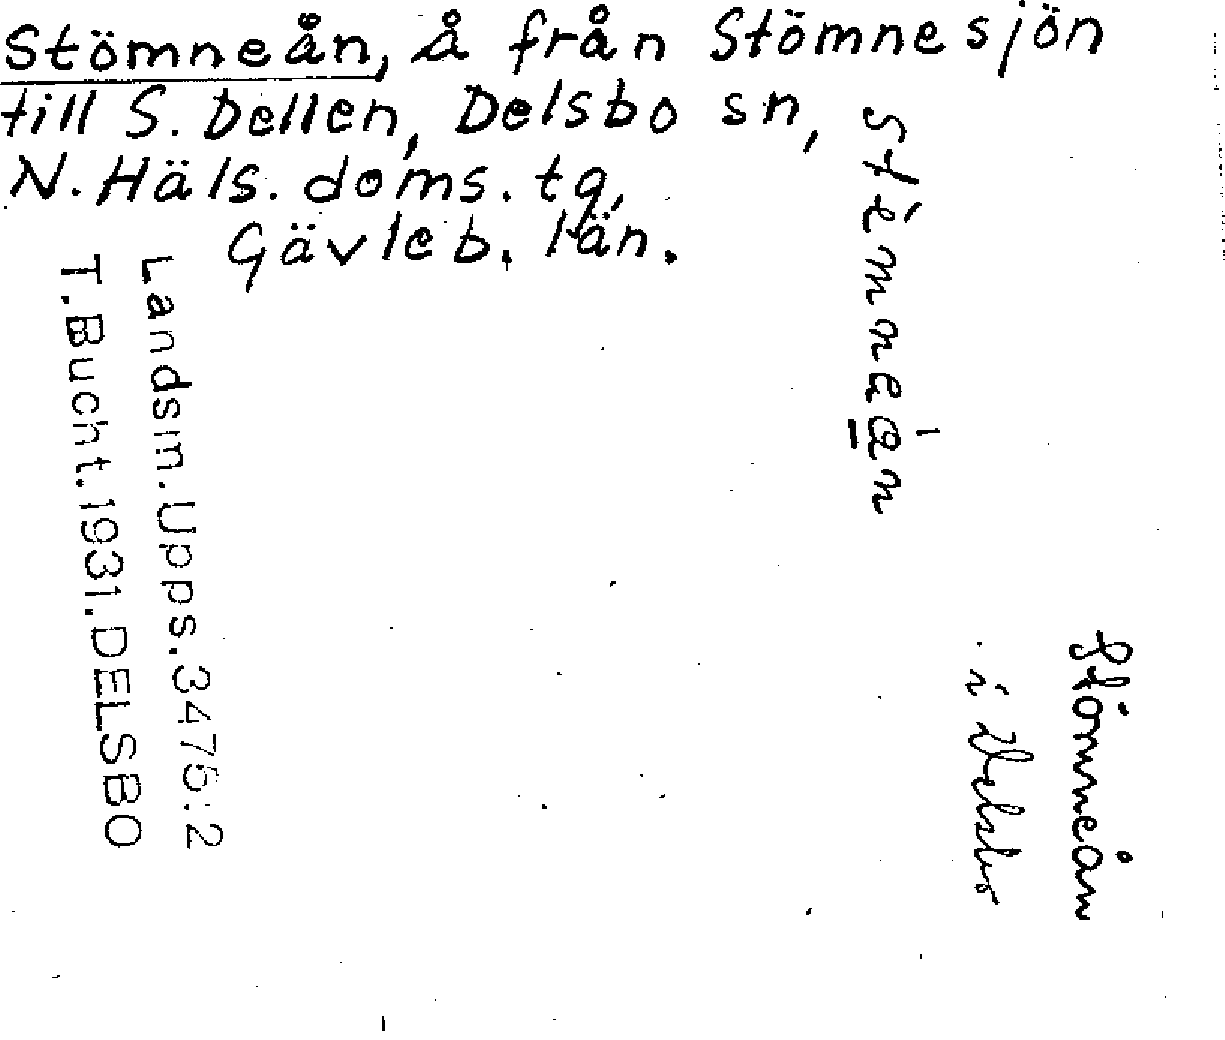 Stömneån, å från Stömnesjön
till S. Dellen, Delsbo sn,
N. Häls. doms. tg,
Gävleb. län.
Stömneån
i Delsbo
Landsm. Upps. 3475:2
T. Bucht. 1931. DELSBO